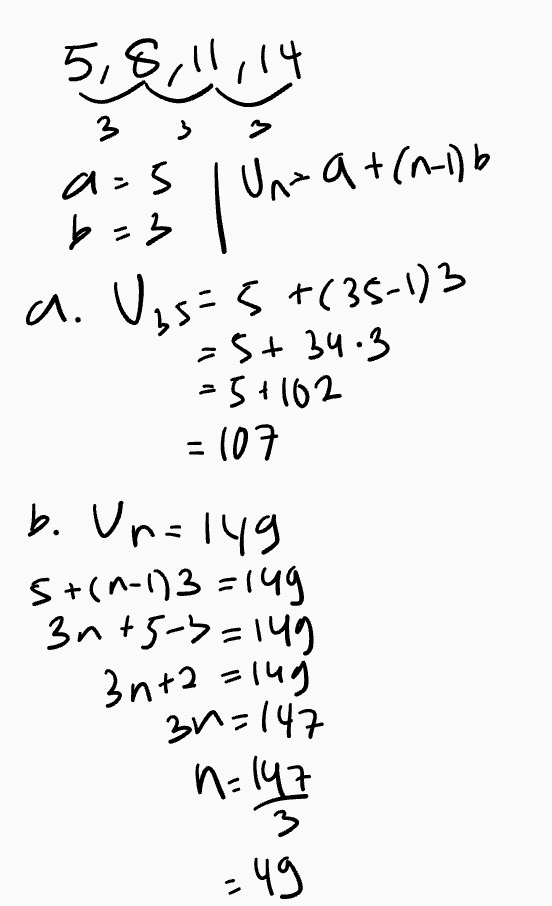 5, 8, 11, 14
3 3 3
a = 5 | Un = a + (n-1) b
b = 3
a. U35 = 5 + (35-1) 3
= 5 + 34 . 3
= 5 + 102
= 107
b. Un = 149
5 + (n-1) 3 = 149
3n + 5 - 3 = 149
3n + 2 = 149
3n = 147
n = 147/3
= 49